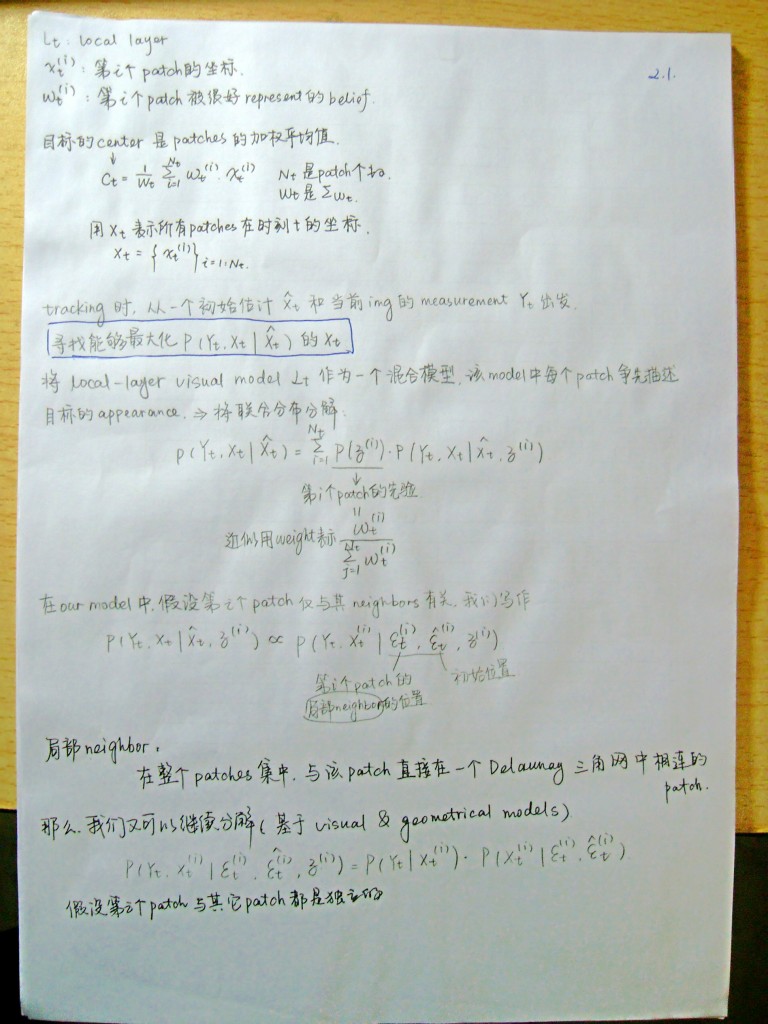 Lt : local layer
2.1.
xt^(i) : 第i个patch的坐标.
wt^(i) : 第i个patch被很好represent的belief.
目标的center 是 patches 的加权平均值.
↓
Ct = 1/Wt Σ_{i=1}^{Nt} wt^(i) · xt^(i) Nt 是patch个数.
Wt 是 Σwt.
用 Xt 表示所有patches 在时刻 t 的坐标.
Xt = { xt^(i) }_{i=1:Nt}.
tracking 时, 从一个初始估计 X̂t 和当前img的 measurement Yt 出发.
寻找能够最大化 P(Yt, Xt | X̂t) 的 Xt
将 local-layer visual model Lt 作为一个混合模型, 该model中每个patch争先描述
目标的appearance. ⇒ 将联合分布分解:
P(Yt, Xt | X̂t) = Σ_{i=1}^{Nt} P(z^(i)) · P(Yt, Xt | X̂t, z^(i))
↓
第i个patch的先验
||
近似用weight表示 wt^(i) / Σ_{j=1}^{Nt} wt^(i)
在our model中, 假设第i个patch仅与其neighbors有关, 我们写作
P(Yt, Xt | X̂t, z^(i)) ∝ P(Yt, Xt^(i) | εt^(i), ε̂t^(i), z^(i))
第i个patch的 初始位置
局部neighbor的位置
局部neighbor:
在整个patches集中, 与该patch直接在一个Delaunay 三角网中相连的
patch.
那么, 我们又可以继续分解(基于 visual & geometrical models)
P(Yt, Xt^(i) | εt^(i), ε̂t^(i), z^(i)) = P(Yt | Xt^(i)) · P(Xt^(i) | εt^(i), ε̂t^(i))
假设第i个patch与其它patch都是独立的